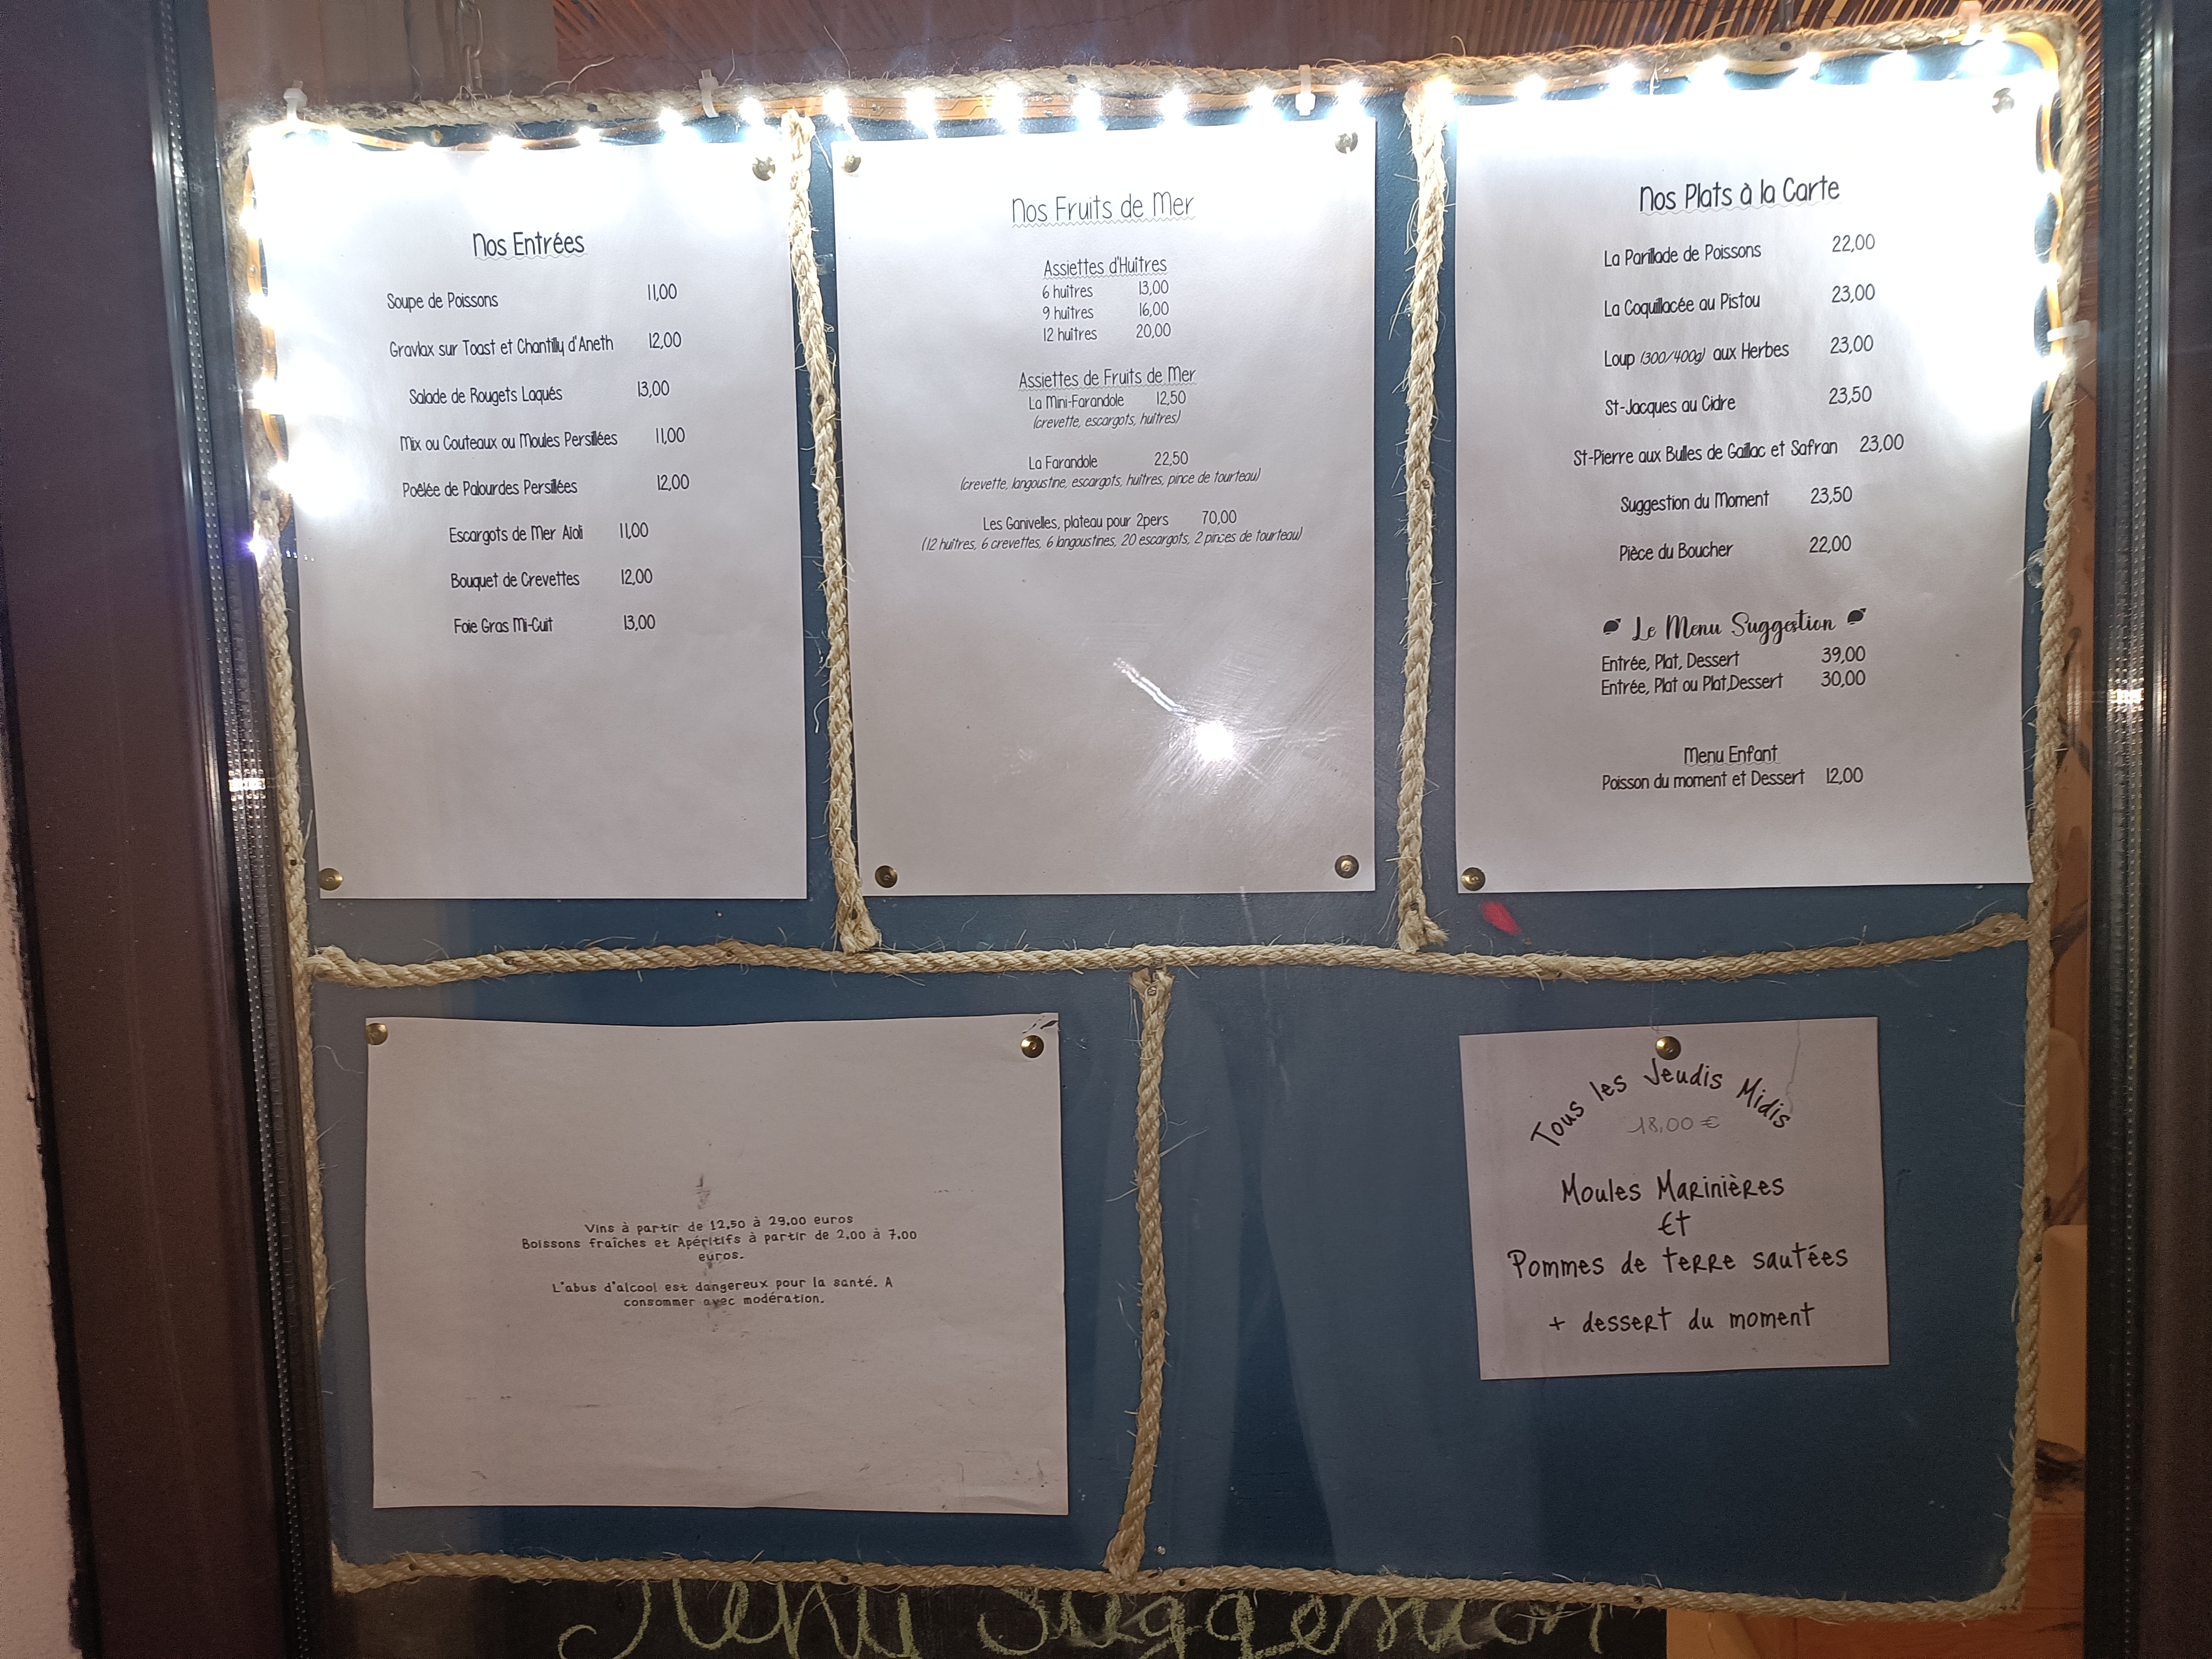 Nos Entrées
Soupe de Poissons 11,00
Gravlax sur Toast et Chantilly d'Aneth 12,00
Salade de Rougets Laqués 13,00
Mix ou Couteaux ou Moules Persillées 11,00
Poêlée de Palourdes Persillées 12,00
Escargots de Mer Aïoli 11,00
Bouquet de Crevettes 12,00
Foie Gras Mi-Cuit 13,00
Nos Fruits de Mer
Assiettes d'Huîtres
6 huîtres 13,00
9 huîtres 16,00
12 huîtres 20,00
Assiettes de Fruits de Mer
La Mini-Farandole 12,50
(crevette, escargots, huîtres)
La Farandole 22,50
(crevette, langoustine, escargots, huîtres, pince de tourteau)
Les Ganivelles, plateau pour 2pers 70,00
(12 huîtres, 6 crevettes, 6 langoustines, 20 escargots, 2 pinces de tourteau)
Nos Plats à la Carte
La Parillade de Poissons 22,00
La Coquillacée au Pistou 23,00
Loup (300/400g) aux Herbes 23,00
St-Jacques au Cidre 23,50
St-Pierre aux Bulles de Gaillac et Safran 23,00
Suggestion du Moment 23,50
Pièce du Boucher 22,00
Le Menu Suggestion
Entrée, Plat, Dessert 39,00
Entrée, Plat ou Plat,Dessert 30,00
Menu Enfant
Poisson du moment et Dessert 12,00
Vins à partir de 12,50 à 29,00 euros
Boissons fraîches et Apéritifs à partir de 2,00 à 7,00
euros.
L'abus d'alcool est dangereux pour la santé. A
consommer avec modération.
Tous les Jeudis Midis
18,00 €
Moules Marinières
Et
Pommes de terre sautées
+ dessert du moment
Menu Suggestion